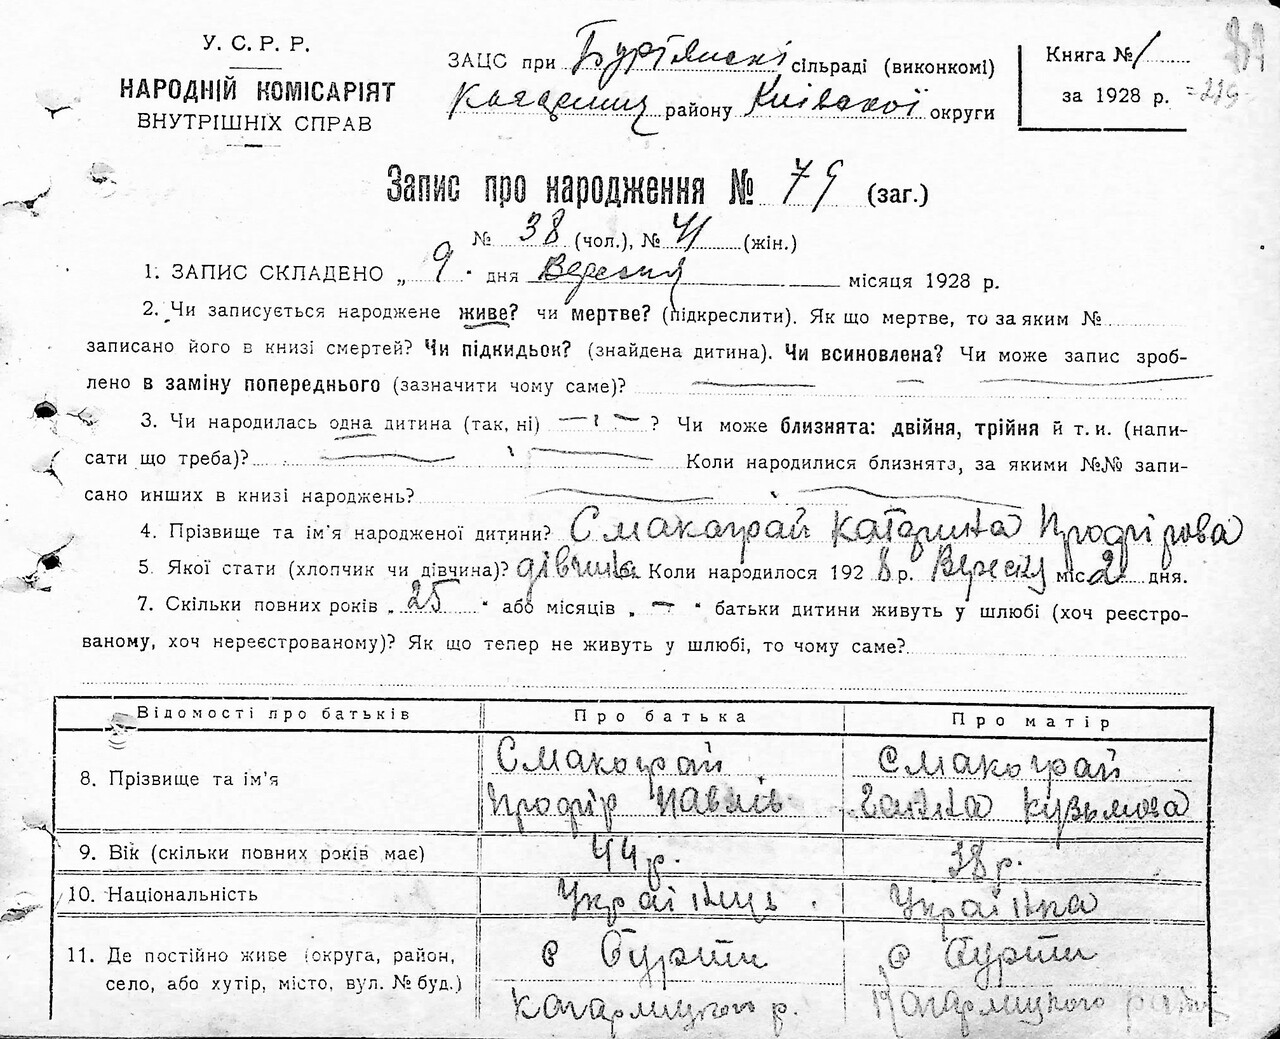 У. С. Р. Р.
НАРОДНІЙ КОМІСАРІЯТ
ВНУТРІШНІХ СПРАВ
ЗАЦС при Буртянські сільраді (виконкомі)
району Київської округи
Книга № 1
за 1928 р.
Запис про народження № 79 (заг.)
№ 38 (чол.), № 41 (жін.)
1. ЗАПИС СКЛАДЕНО „ 9 " дня Вересня місяця 1928 р.
2. Чи записується народжене живе? чи мертве? (підкреслити). Як що мертве, то за яким №
записано його в книзі смертей? Чи підкидьок? (знайдена дитина). Чи всиновлена? Чи може запис зроб-
лено в заміну попереднього (зазначити чому саме)?
3. Чи народилась одна дитина (так, ні) ? Чи може близнята: двійня, трійня й т. и. (напи-
сати що треба)? Коли народилися близнята, за якими №№ запи-
сано инших в книзі народжень?
4. Прізвище та ім'я народженої дитини? Смакограй Катерина Профірова
5. Якої стати (хлопчик чи дівчина)? дівчина Коли народилося 1928 р. Вересня міс. 2 дня.
7. Скільки повних років „ 25 " або місяців „ — " батьки дитини живуть у шлюбі (хоч реєстро-
ваному, хоч нереєстрованому)? Як що тепер не живуть у шлюбі, то чому саме?
Відомості про батьків Про батька Про матір
8. Прізвище та ім'я Смакограй Профір Павлів Смакограй Ганна Кузьмова
9. Вік (скільки повних років має) 44 р. 38 р.
10. Національність Українець Українка
11. Де постійно живе (округа, район, в Бурти в Бурти
село, або хутір, місто, вул. № буд.) Кагарлицького р. Кагарлицького